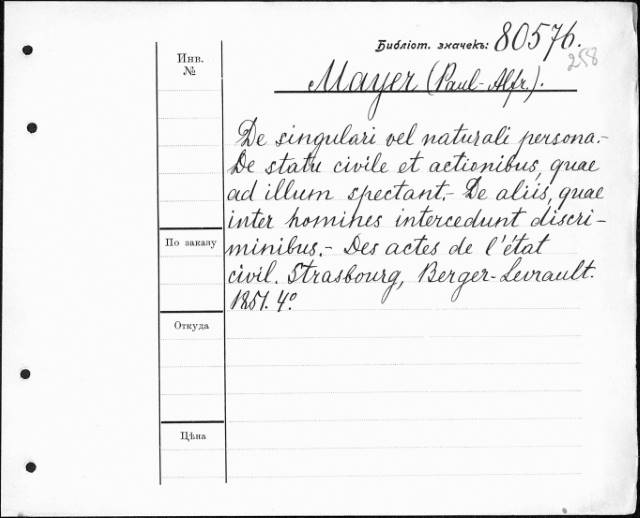 Библіот. значекъ: 80576.
258
Инв.
№
Mayer (Paul-Alfr.).
De singulari vel naturali persona.-
De statu civile et actionibus, quae
ad illum spectant.- De aliis, quae
inter homines intercedunt discri-
minibus.- Des actes de l'état
civil. Strasbourg, Berger-Levrault.
1851. 4º.
По заказу
Откуда
Цѣна